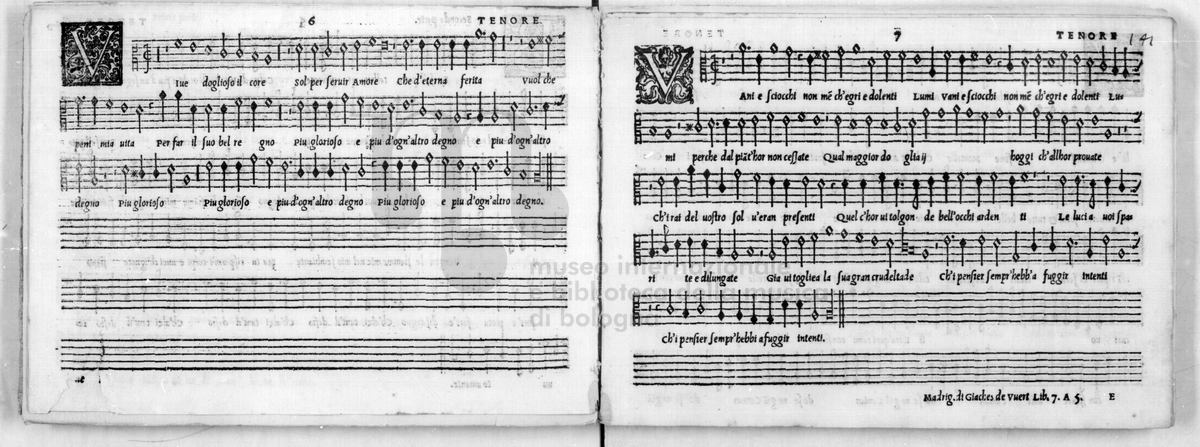 6 TENORE
V
Iue doglioso il core Sol per seruir Amore Che d'eterna ferita vuol che
peni mia uita Per far il suo bel re gno Piu glorioso e piu d'ogn'altro degno e piu d'ogn'altro
degno Piu glorioso Piu glorioso e piu d'ogn'altro degno Piu glorioso e piu d'ogn'altro degno.
7 TENORE 141
V
Ani e sciocchi non mē ch'egri e dolenti Lumi vani e sciocchi non mē ch'egri e dolenti Lu-
mi perche dal piāt'hor non cessate Qual maggior do glia ij hoggi ch'allhor prouate
Ch'i rai del uostro sol u'eran presenti Quel c'hor ui tolgon de bell'occhi arden ti Le luci a uoi spa=
ri te e dilungate Gia ui togliea la sua gran crudeltade Ch'i pensier sempr'hebb'a fuggir intenti
Ch'i pensier sempr'hebbi a fuggir intenti.
Madrig. di Giaches de Vuert Lib. 7. A 5. E
museo internazionale
e biblioteca della musica
di bologna